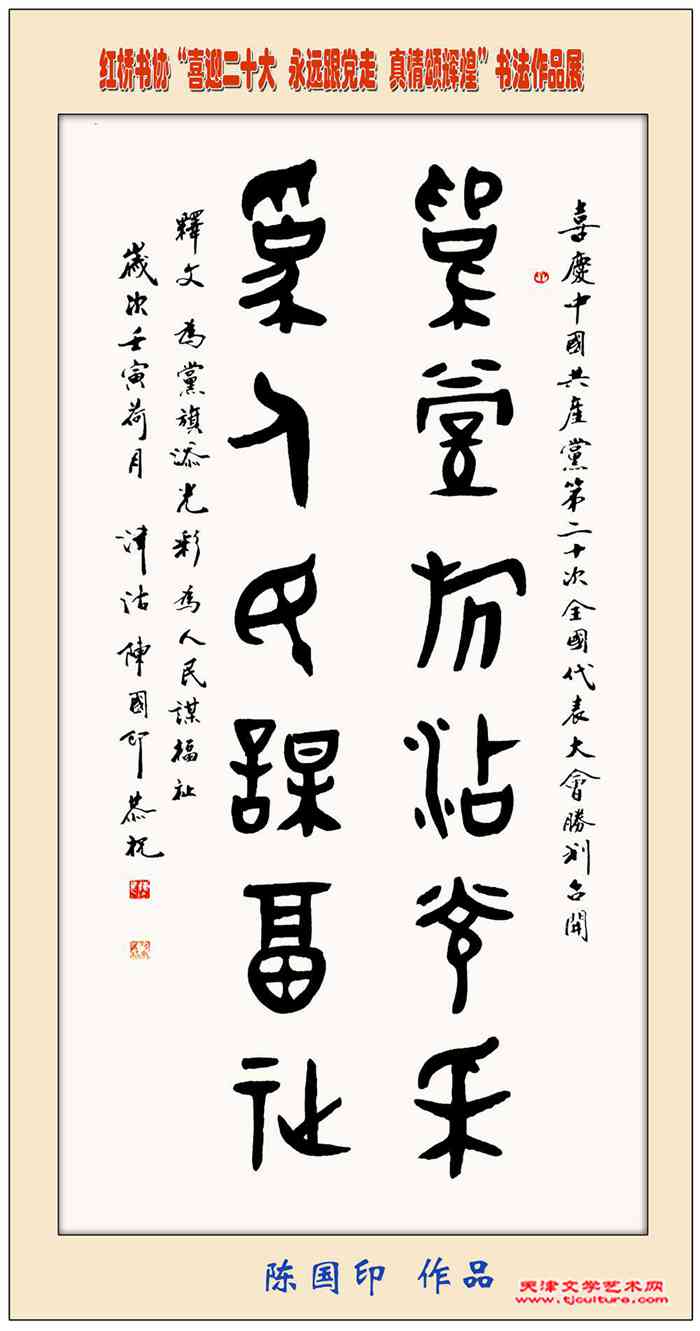 红桥书协“喜迎二十大 永远跟党走 真情颂辉煌”书法作品展
喜慶中國共產黨第二十次全國代表大會勝利召開
為黨旂添光采
為人民謀福祉
釋文 為黨旗添光彩 為人民謀福祉
歲次壬寅荷月 津沽陳國印恭祝
陈国印 作品
天津文学艺术网
www.tjculture.com